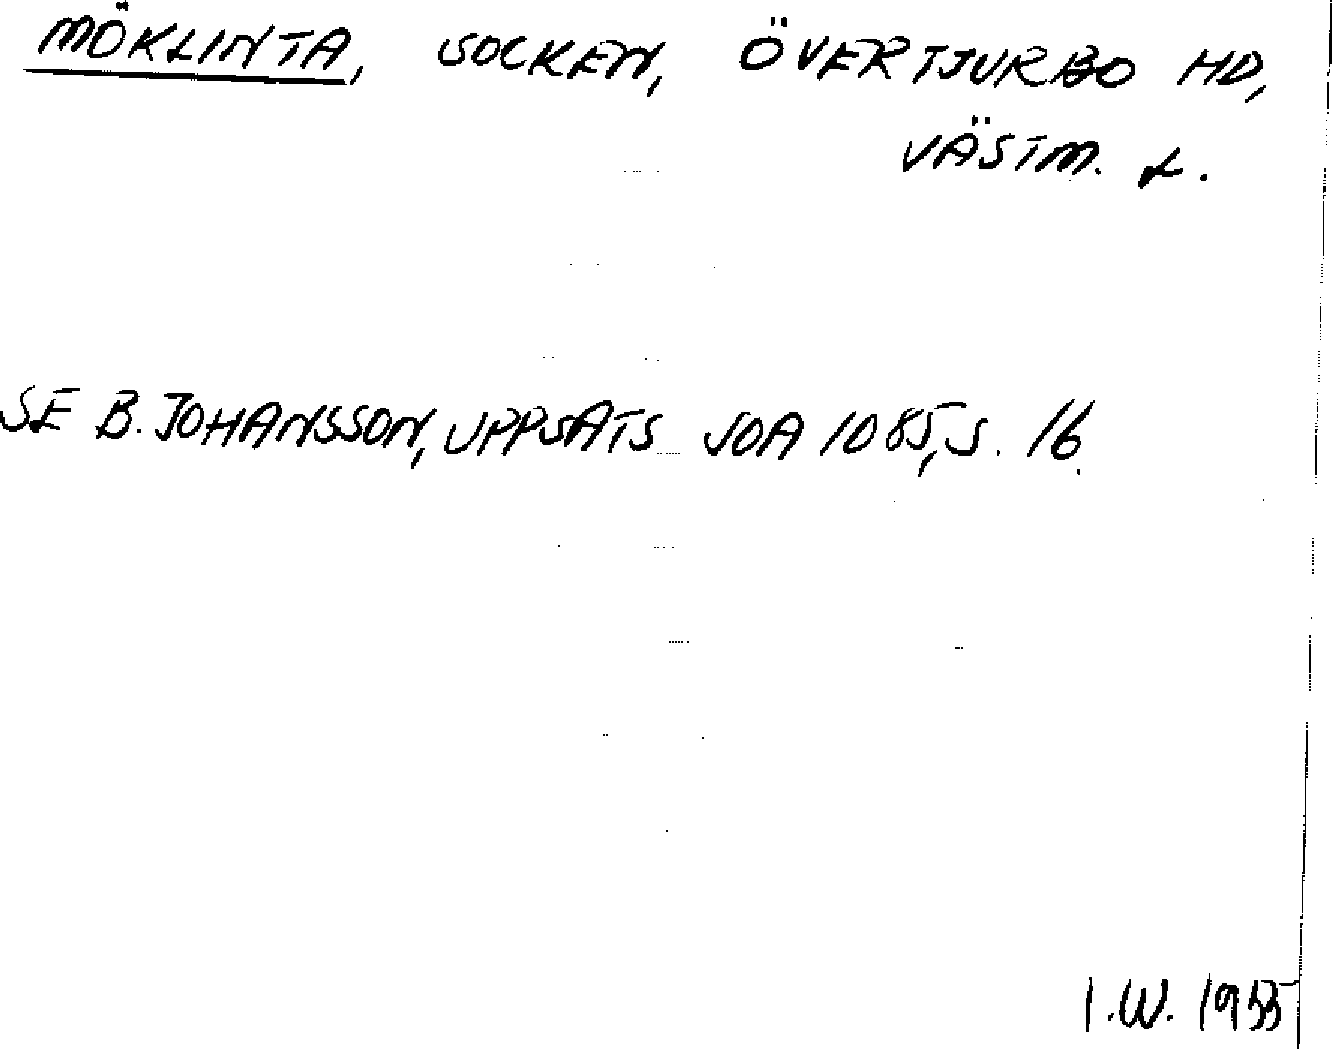 MÖKLINTA, SOCKEN, ÖVERTJURBO HD,
VÄSTM. L.
SE B. JOHANSSON, UPPSATS SOA 1085, S. 16
I.W. 1955